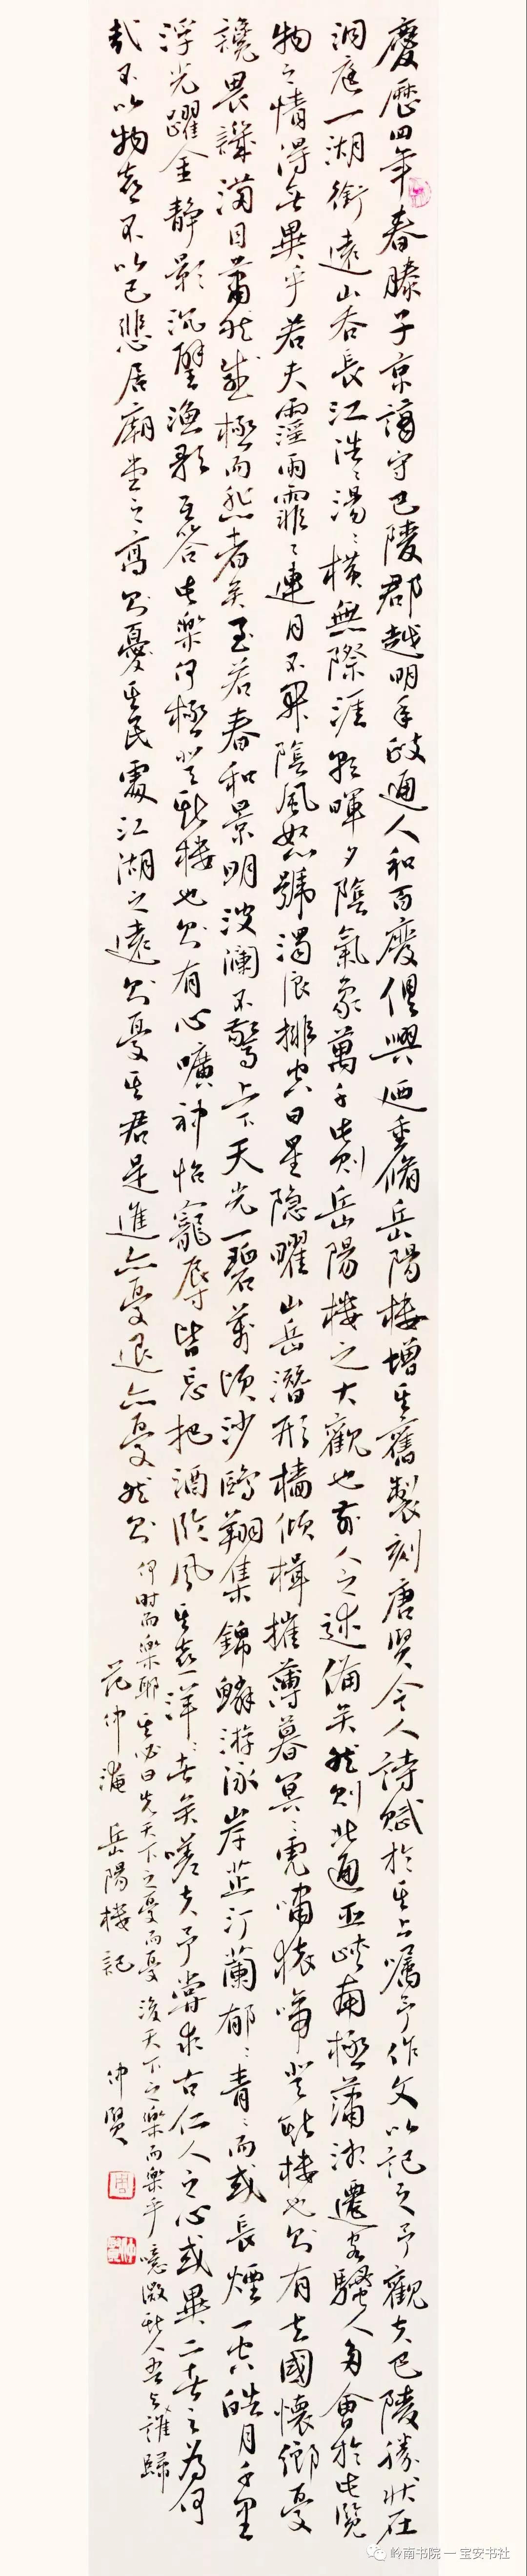 慶歷四年春滕子京謫守巴陵郡越明年政通人和百廢俱興迺重脩岳陽樓增其舊製刻唐賢今人詩賦於其上嘱予作文以記之予觀夫巴陵勝狀在
洞庭一湖銜遠山吞長江浩〻湯〻橫無際涯朝暉夕陰氣象萬千此則岳陽樓之大觀也前人之述備矣然則北通巫峽南極瀟湘遷客騷人多會於此覽
物之情得無異乎若夫霪雨霏〻連月不開陰風怒號濁浪排空日星隐曜山岳潛形檣傾楫摧薄暮冥〻虎嘯猿啼登斯樓也則有去國懷鄉憂
讒畏譏滿目蕭然感極而悲者矣至若春和景明波瀾不驚上下天光一碧萬頃沙鷗翔集錦鱗游泳岸芷汀蘭郁〻青〻而或長煙一空皓月千里
浮光躍金靜影沉璧漁歌互答此樂何極登斯樓也則有心曠神怡寵辱皆忘把酒臨風其喜洋〻者矣嗟夫予嘗求古仁人之心或異二者之為何
哉不以物喜不以己悲居廟堂之高則憂其民處江湖之遠則憂其君是進亦憂退亦憂然則
何时而樂耶其必曰先天下之憂而憂後天下之樂而樂乎噫微斯人吾與誰歸
范仲淹岳陽樓記 仲賢
岭南书院 — 宝安书社